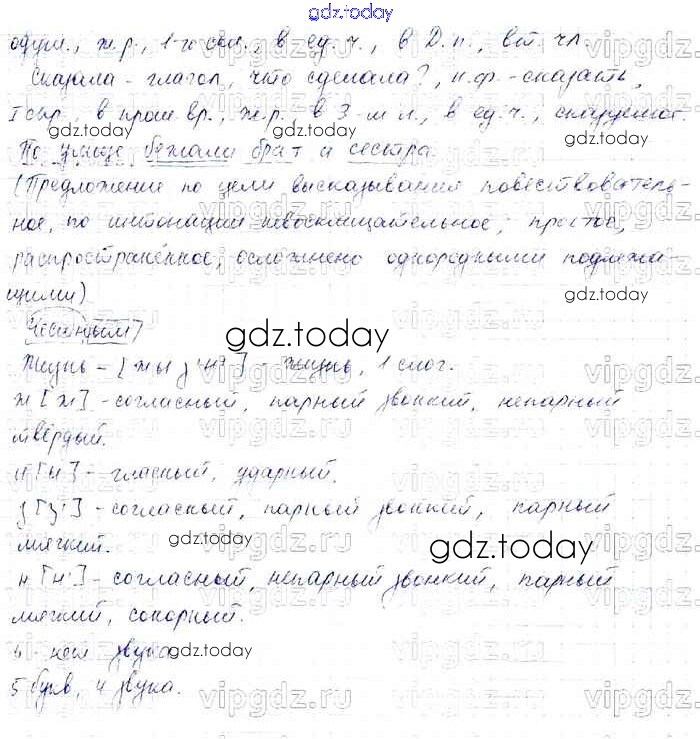 gdz.today
одуш., ж.р., 1-х скл., в ед.ч., в Д.п., вт. чл.
Сказала - глагол, что сделала?, н.ф. - сказать,
I спр., в прош. вр., ж.р., в 3-м л., в ед.ч., сказуемое.
gdz.today gdz.today
По улице бежали брат и сестра
(Предложение по цели высказывания повествователь-
ное, по интонации невосклицательное, простое,
распространённое, осложнено однородными подлежа-
щими)
gdz.today
Честным
gdz.today
Жизнь - [жыз'н'] - жизнь, 1 слог.
ж [ж] - согласный, парный звонкий, непарный
твёрдый.
и [ы] - гласный, ударный.
з [з'] - согласный, парный звонкий, парный
мягкий.
gdz.today
gdz.today
н [н'] - согласный, непарный звонкий, парный
мягкий, сонорный.
ь - нет звука
gdz.today
5 букв, 4 звука.
vipgdz.ru